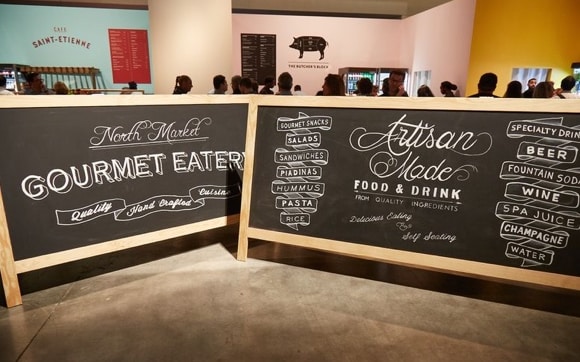 CAFE
SAINT-ÉTIENNE
THE BUTCHER'S BLOCK
North Market
GOURMET EATERY
Quality Hand Crafted Cuisine
GOURMET SNACKS
SALADS
SANDWICHES
PIADINAS
HUMMUS
PASTA
RICE
Artisan
Made
FOOD & DRINK
FROM QUALITY INGREDIENTS
Delicious Eating
&
Self Seating
SPECIALTY DRINK
BEER
FOUNTAIN SODA
WINE
SPA JUICE
CHAMPAGNE
WATER